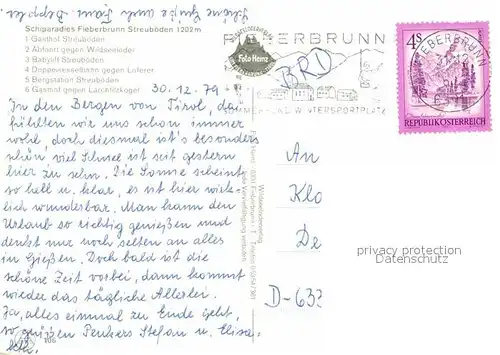 Schiparadies Fieberbrunn Streuböden 1202 m
1 Gasthof Streuböden
2 Abfahrt gegen Wildseeloder
3 Babylift Streuböden
4 Doppelsesselbahn gegen Lofe
5 Bergstation Streuböden
6 Gasthof gegen Larchfilzkogel
30.12.79
In den Bergen von Tirol, da
fühlten wir uns schon immer
wohl, doch diesmal ist's besonders
schön viel Schnee ist seit gestern
hier zu sehn. Die Sonne scheint
so hell u. klar, es ist hier wirk-
lich wunderbar. Man kann den
Urlaub so richtig genießen und
denkt nur noch selten an alles
in Gießen. Doch bald ist die
schöne Zeit vorbei, dann kommt
wieder das tägliche Allerlei.
Ja, alles einmal zu Ende geht,
so grüßen Stefan u. Elisa-
beth.
106
Foto Heinz
FIEBERBRUNN
SOMMER- UND WINTERSPORTPLATZ
BRD
4 S
REPUBLIK ÖSTERREICH
FIEBERBRUNN
An
Klo
De
D-632
privacy protection
Datenschutz